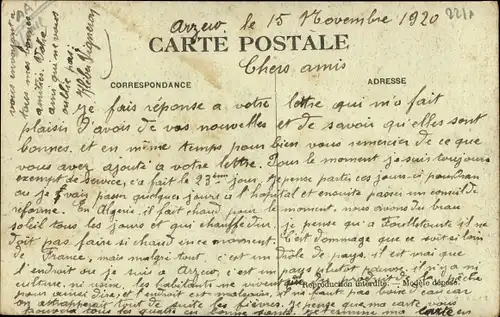 Arzew, le 15 Novembre 1920
CARTE POSTALE
Chers amis
CORRESPONDANCE
ADRESSE
Je fais réponse a votre lettre qui m'a fait
plaisir d'avoir de vos nouvelles et de savoir qu'elles sont
bonnes. et en même temps pour bien vous remercier de ce que
vous avez ajouté a votre lettre. Pour le moment je suis toujours
exempt de service, ça fait le 23ème jour, je pense partir ces jours-ci pour Oran
ou je vais passer quelques jours a l'hopital et ensuite passer un conseil de
reforme. En Algerie il fait chaud pour le moment, nous avons du beau
soleil tous les jours et qui chauffe dur je pense qu'a
doit pas faire si chaud en ce moment. C'est dommage que ce soit si loin
de France, mais malgré tout, c'est un drôle de pays, il est vrai que
l'endroit ou je suis a Arzew, c'est un pays plutot il n'y a ni
culture, ni les habitants ne vivent de la pêche
Reproduction interdite. — Modèle déposé.
pour ainsi dire, et l'endroit est ne faut pas boire d'eau car
on attraperait tout de suite les fièvres. Je pense que ma carte
vous trouvera tous les quatre en bonne santé. Je termine ma carte en
vous envoyant a
tous mes bonnes
amitiés. Votre
ami qui ne vous
oublie pas